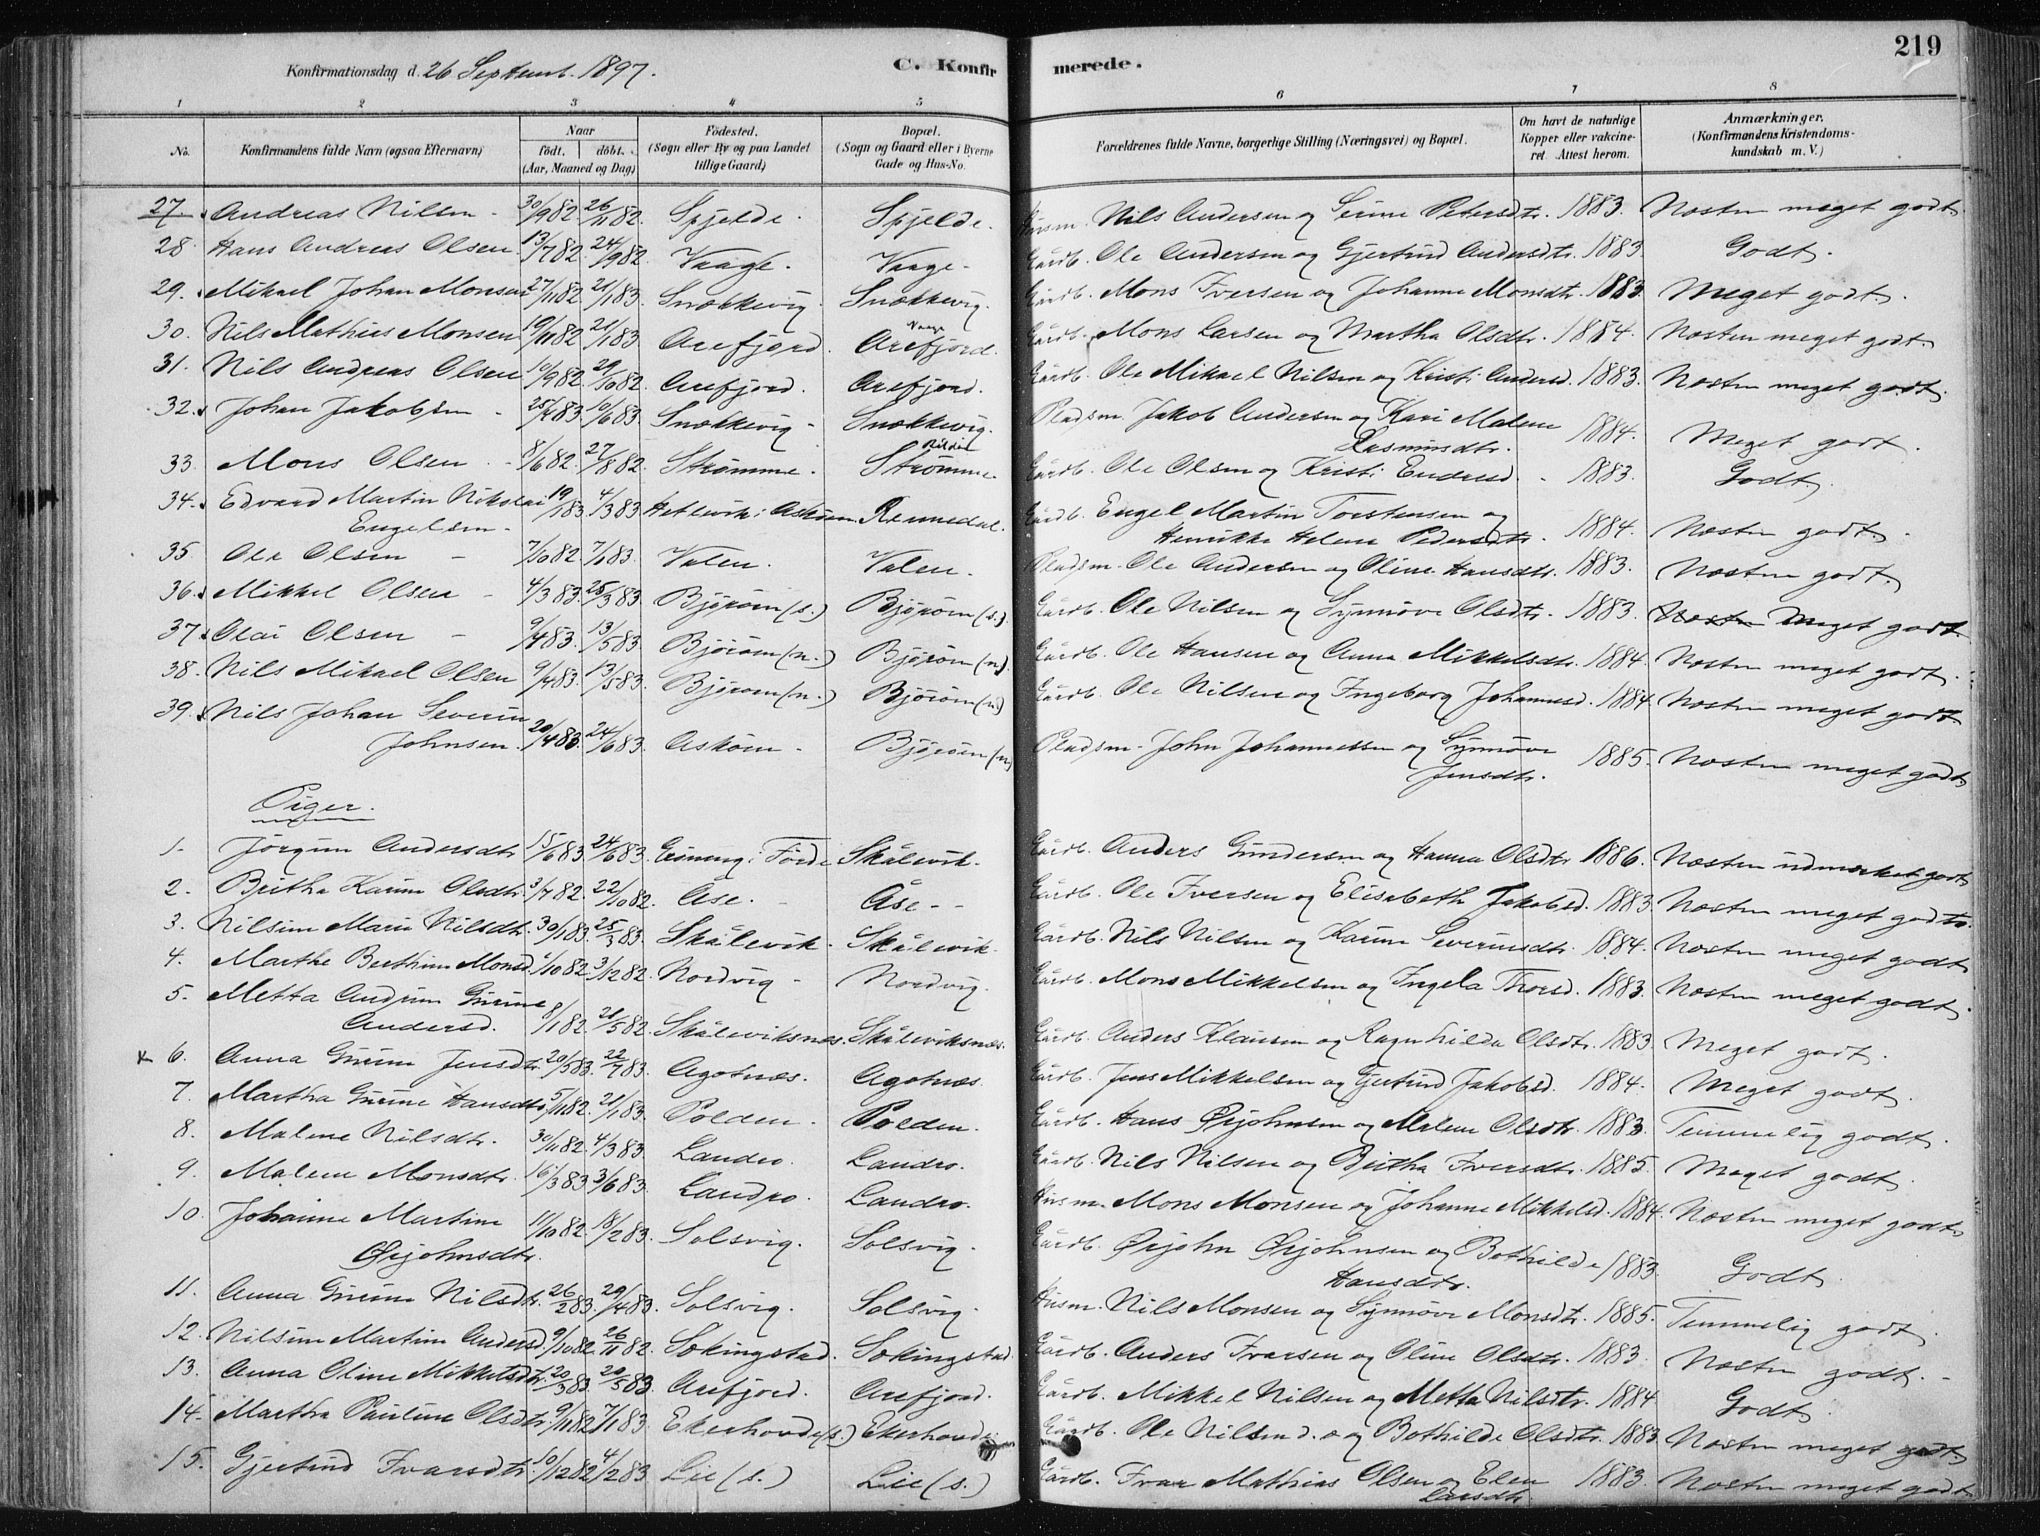 219
Konfirmationsdag d. 26 Septemb. 1897.
C. Konfirmerede.
1 2 3 4 5 6 7 8
No. Konfirmandens fulde Navn (ogsaa Efternavn) Naar födt. döbt. (Aar, Maaned og Dag) Födested. (Sogn eller By og paa Landet tillige Gaard) Bopæl. (Sogn og Gaard eller i Byerne Gade og Hus-No. Forældrenes fulde Navne, borgerlige Stilling (Næringsvei) og Bopæl. Om havt de naturlige Kopper eller vakcineret. Attest herom. Anmærkninger. (Konfirmandens Kristendomskundskab m. V.)
27. Andreas Nilsen 30/9 82. 26/11 82. Spjelde. Spjelde. Husm. Nils Andersen og Serine Petersdtr. 1883. Næsten meget godt.
28. Hans Andreas Olsen 13/7 82. 24/9 82. Vaage. Vaage. Gårdb. Ole Andersen og Gjertrud Andersdtr. 1883. Godt.
29. Mikael Johan Monsen 27/11 82. 21/1 83. Snækkevig. Snækkevig. Gårdb. Mons Iversen og Johanne Monsdtr. 1883. Meget godt.
30. Nils Mathias Monsen 19/11 82. 21/1 83. Arefjord. Vaage Arefjord. Gårdb. Mons Larsen og Martha Olsdtr. 1884. Næsten meget godt.
31. Nils Andreas Olsen 10/9 82. 29/10 82. Arefjord. Arefjord. Gårdb. Ole Mikael Nilsen og Kristi Andersd. 1883. Næsten meget godt.
32. Johan Jakobsen 25/4 83. 10/6 83. Snækkevig. Snækkevig. Pladsm. Jakob Andersen og Kari Malene Rasmusdtr. 1884. Meget godt.
33. Mons Olsen 8/6 82. 27/8 82. Strømme. Strømme. Gårdb. Ole Olsen og Kristi Endresd. 1883. Godt.
34. Edvard Martin Nikolai Engelsen 19/1 83. 4/3 83. Hetlevik i Askøen. Remmedal. Gårdb. Engel Martin Torstensen og Henrikke Helene Pedersdtr. 1884. Næsten godt.
35. Ole Olsen 7/10 82. 7/1 83. Valen. Valen. Pladsm. Ole Andersen og Oline Hansdtr. 1883. Næsten godt.
36. Mikkel Olsen 4/3 83. 25/3 83. Bjørøen (s.) Bjørøen (s.) Gårdb. Ole Nilsen og Synnøve Olsdtr. 1883. Meget godt.
37. Olai Olsen 9/4 83. 13/5 83. Bjørøen (n.) Bjørøen (n.) Gårdb. Ole Hansen og Anna Mikkelsdtr. 1884. Næsten meget godt.
38. Nils Mikael Olsen 9/4 83. 13/5 83. Bjørøen (n.) Bjørøen (n.) Gårdb. Ole Nilsen og Ingeborg Johannesd. 1884. Næsten meget godt.
39. Nils Johan Severin Johnsen 20/4 83. 24/6 83. Askøen. Bjørøen (n) Pladsm. John Johannessen og Synnøve Jensdtr. 1885. Næsten meget godt.
Piger.
1. Jörgine Andersdtr. 15/6 83. 24/6 83. i Førde Skålevik. Gårdb. Anders Gundersen og Hanna Olsdtr. 1886. Næsten udmærket godt
2. Britha Karine Olsdtr. 3/7 82. 22/10 82. Åse. Åse. Gårdb. Ole Iversen og Elisabeth Jakobsd. 1883. Næsten meget godt.
3. Nilsine Marie Nilsdtr. 30/1 83. 25/3 83. Skålevik. Skålevik. Gårdb. Nils Nilsen og Karine Severinsdtr. 1884. Næsten meget godt
4. Marthe Berthine Monsd. 1/10 82. 3/12 82. Nordvig. Nordvig. Gårdb. Mons Mikkelsen og Ingela Thorsd. 1883. Næsten meget godt.
5. Metta Andrine Gurine Andersd. 8/1 82. 21/5 82. Skåleviksnæs. Skåleviksnæs. Gårdb. Anders Klausen og Ragnhilda Olsdtr. 1883. Meget godt.
x 6. Anna Gurine Jensdtr. 20/5 83. 22/7 83. Agotnæs. Agotnæs. Gårdb. Jens Mikkelsen og Gjertrud Jakobsd. 1884. Meget godt.
7. Martha Gurine Hansdtr. 5/11 82. 21/1 83. Polden. Polden. Gårdb. Hans Ørjohnsen og Malene Olsdtr. 1883. Temmelig godt.
8. Malene Nilsdtr. 30/11 82. 4/3 83. Landro. Landro. Gårdb. Nils Nilsen og Britha Iversdtr. 1885. Meget godt.
9. Malene Monsdtr. 16/3 83. 3/6 83. Landro. Landro. Husm. Mons Monsen og Johanne Mikkelsd. 1884. Næsten meget godt
10. Johanne Martine Ørjohnsdtr. 11/10 82. 18/2 83. Solsvig. Solsvig. Gårdb. Ørjohn Ørjohnsen og Bothilde Hansdtr. 1883. Godt.
11. Anna Gurine Nilsdtr. 26/2 83. 29/4 83. Solsvig. Solsvig. Husm. Nils Monsen og Synnøve Monsdtr. 1885. Temmelig godt.
12. Nilsine Martine Andersd. 9/10 82. 26/11 82. Sekingstad. Sekingstad. Gårdb. Anders Ivarsen og Oline Olsdtr. 1883. Næsten godt.
13. Anna Oline Mikkelsdtr. 20/3 83. 20/5 83. Arefjord. Arefjord. Gårdb. Mikkel Nilsen og Metta Nilsdtr. 1884. Godt.
14. Martha Pauline Olsdtr. 9/11 82. 7/1 83. Ekerhovde (s.) Ekerhovde. Gårdb. Ole Nilsen d. æ og Bothilde Olsdtr. 1883. Næsten meget godt.
15. Gjertrud Ivarsdtr. 10/12 82. 4/2 83. Lie (s.) Lie (s.) Gårdb. Ivar Mathias Olsen og Elen Larsdtr. 1883. Næsten meget godt